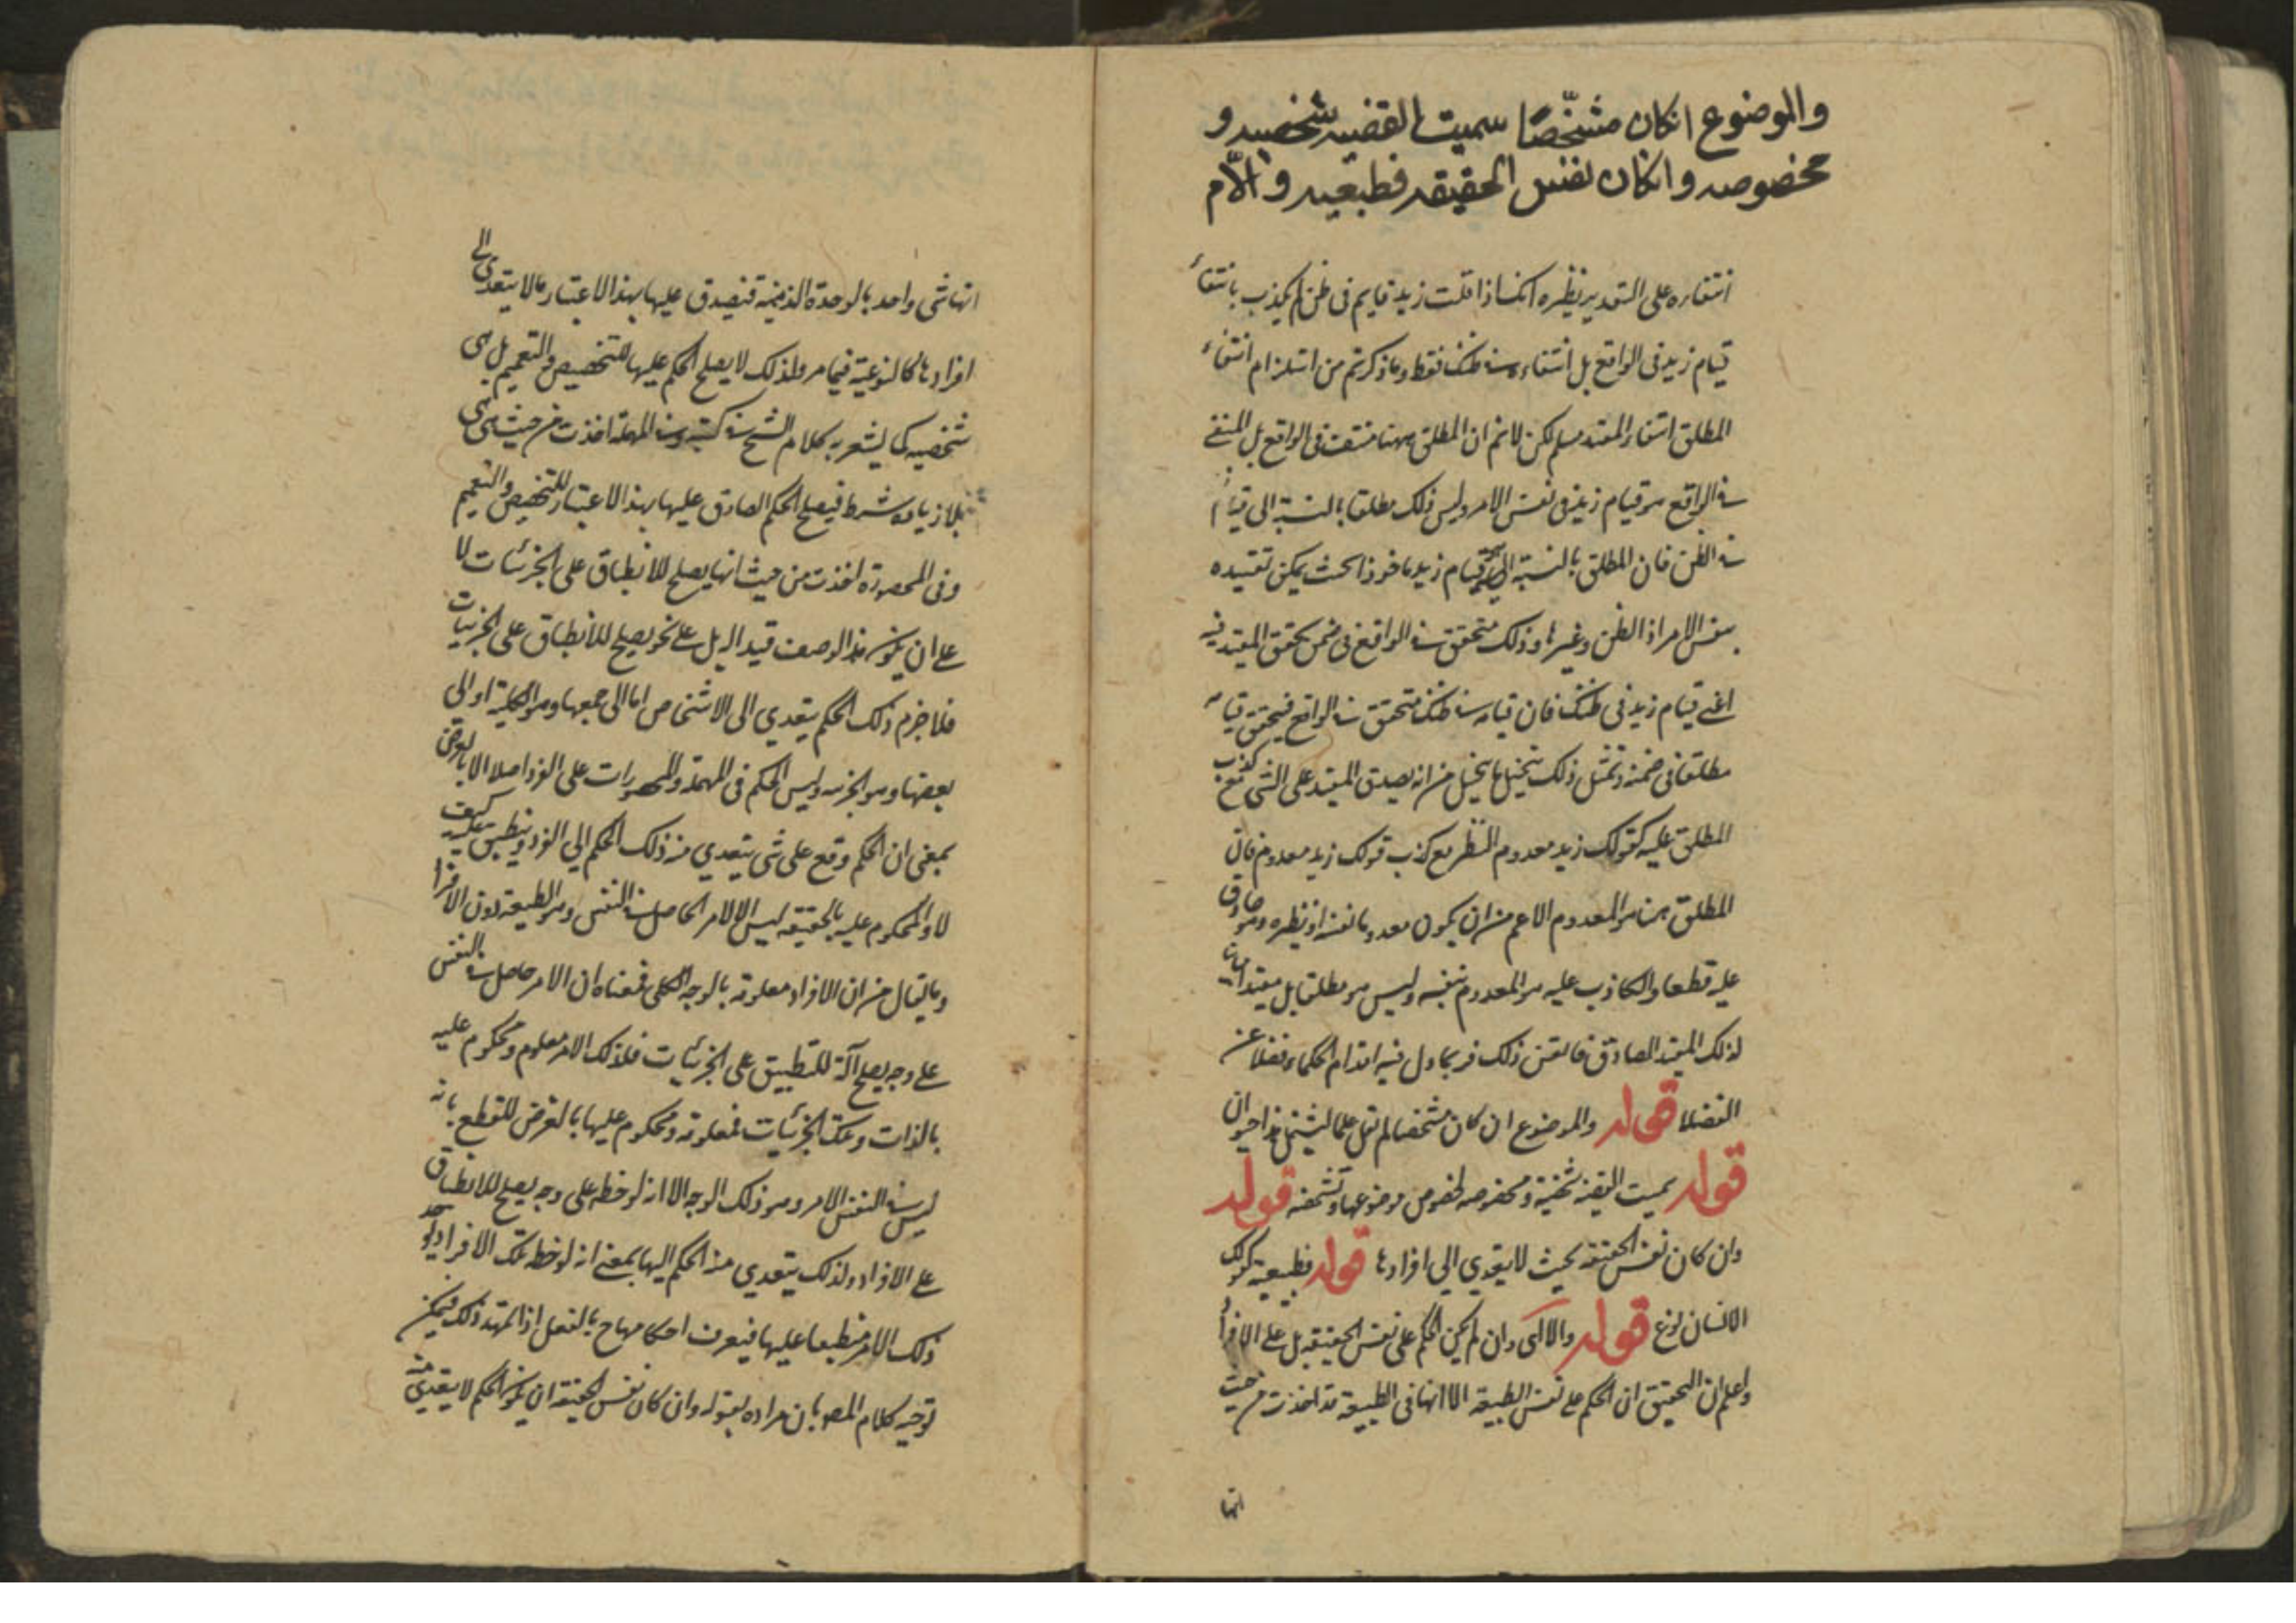 والموضوع انكان مشخّصًا سميت القضيه شخصيه و
مخصوصه وانكان نفس الحقيقه فطبعيه والّا م
انتفاره على التقدير نظيره انك اذا قلت زيد قايم فى ظنى لم يكذب بانتفاء
قيام زيد فى الواقع بل انتفاءه فى ظنك فقط وما ذكرتم من استلزام انتفاء
المطلق انتفاء المقيد مسلم لكن لانم ان المطلق ههنا منتف فى الواقع بل المنفے
فى الواقع هو قيام زيد فى نفس الامر وليس ذلك مطلقا بالنسبة الى قيامه
فى الظن فان المطلق بالنسبة اليه قيام زيد ماخوذا بحيث يمكن تقييده
بنفس الامر اذ الظن وغيرها وذلك متحقق فى الواقع فى ضمن تحقق المقيد فيه
اعنے قيام زيد فى ظنك فان قيامه فى ظنك متحقق فى الواقع فيتحقق قيامه
مطلقا فى ضمنه وبمثل ذلك يتخيل ما يتخيل من انه يصدق المقيد على الشى مع كذب
المطلق عليه كقولك زيد معدوم النظير مع كذب قولك زيد معدوم فان
المطلق هنا هو المعدوم الاعم من ان يكون معدوما بنفسه او نظيره وهو صادق
عليه قطعا والكاذب عليه هو المعدوم بنفسه وليس هو مطلقا بل مقيد
لذلك المقيد الصادق فاتقن ذلك فربما زل فيه اقدام الحكماء فضلا عن
الفضلا قوله والموضوع ان كان مشخصا لم يقل علما ليشتمل هذا حيوان
قوله سميت القضية شخصية ومخصوصه لخصوص موضوعها وتشخصه قوله
وان كان نفس الحقيقة بحيث لا يتعدي الى افرادها قوله فطبيعية كقولك
الانسان نوع قوله والا اى وان لم يكن الحكم على نفس الحقيقه بل على الافراد
واعلم ان التحقيق ان الحكم على نفس الطبيعة الا انها فى الطبيعية قد اخذت من حيث
انها
انها شى واحد بالوحدة الذهنية فيصدق عليها بهذا الاعتبار ما لا يتعدى الى
افرادها كالنوعية فيما مر ولذلك لا يصلح الحكم عليها للتخصيص والتعميم بل هى
شخصيه كما يشعر به كلام الشيخ فى كتبه وفى المهملة اخذت من حيث هى هى
بلا زيادة شرط فيصلح الحكم الصادق عليها بهذا الاعتبار للتخصيص والتعميم
وفى المحصورة اخذت من حيث انها يصلح للانطباق على الجزئيات لا
على ان يكون هذا الوصف قيدا له بل على نحو يصلح للانطباق على الجزئيات
فلا جرم ذلك الحكم يتعدي الى الاشخاص اما الى جميعها وهو الكلية او الى
بعضها وهو الجزئيه وليس الحكم فى المهملة والمحصورات على الفرد اصلا الا بالعرض
بمعنى ان الحكم وقع على شى يتعدي منه ذلك الحكم الى الفرد وينطبق عليه كيف
لا والمحكوم عليه بالحقيقه ليس الا الامر الحاصل فى النفس وهو الطبيعة دون الافراد
وما يقال من ان الافراد معلومة بالوجه الكلى فمعناه ان الامر حاصل فى النفس
على وجه يصلح آلة للتطبيق على الجزئيات فلذلك الامر معلوم ومحكوم عليه
بالذات وتلك الجزئيات فمعلومه ومحكوم عليها بالعرض للقطع بانه
ليس فى النفس الامر وهو ذلك الوجه الا انه لوحظ على وجه يصلح للانطباق
على الافراد ولذلك يتعدي منه الحكم اليها بمعنى انه لوحظ تلك الافراد
ذلك الامر منطبعا عليها فيعرف احكامها ح بالفعل اذا تمهد ذلك فيمكن
توجيه كلام المصر بان مراده بقوله وان كان نفس الحقيقة ان يكون الحكم لا يتعدي منه